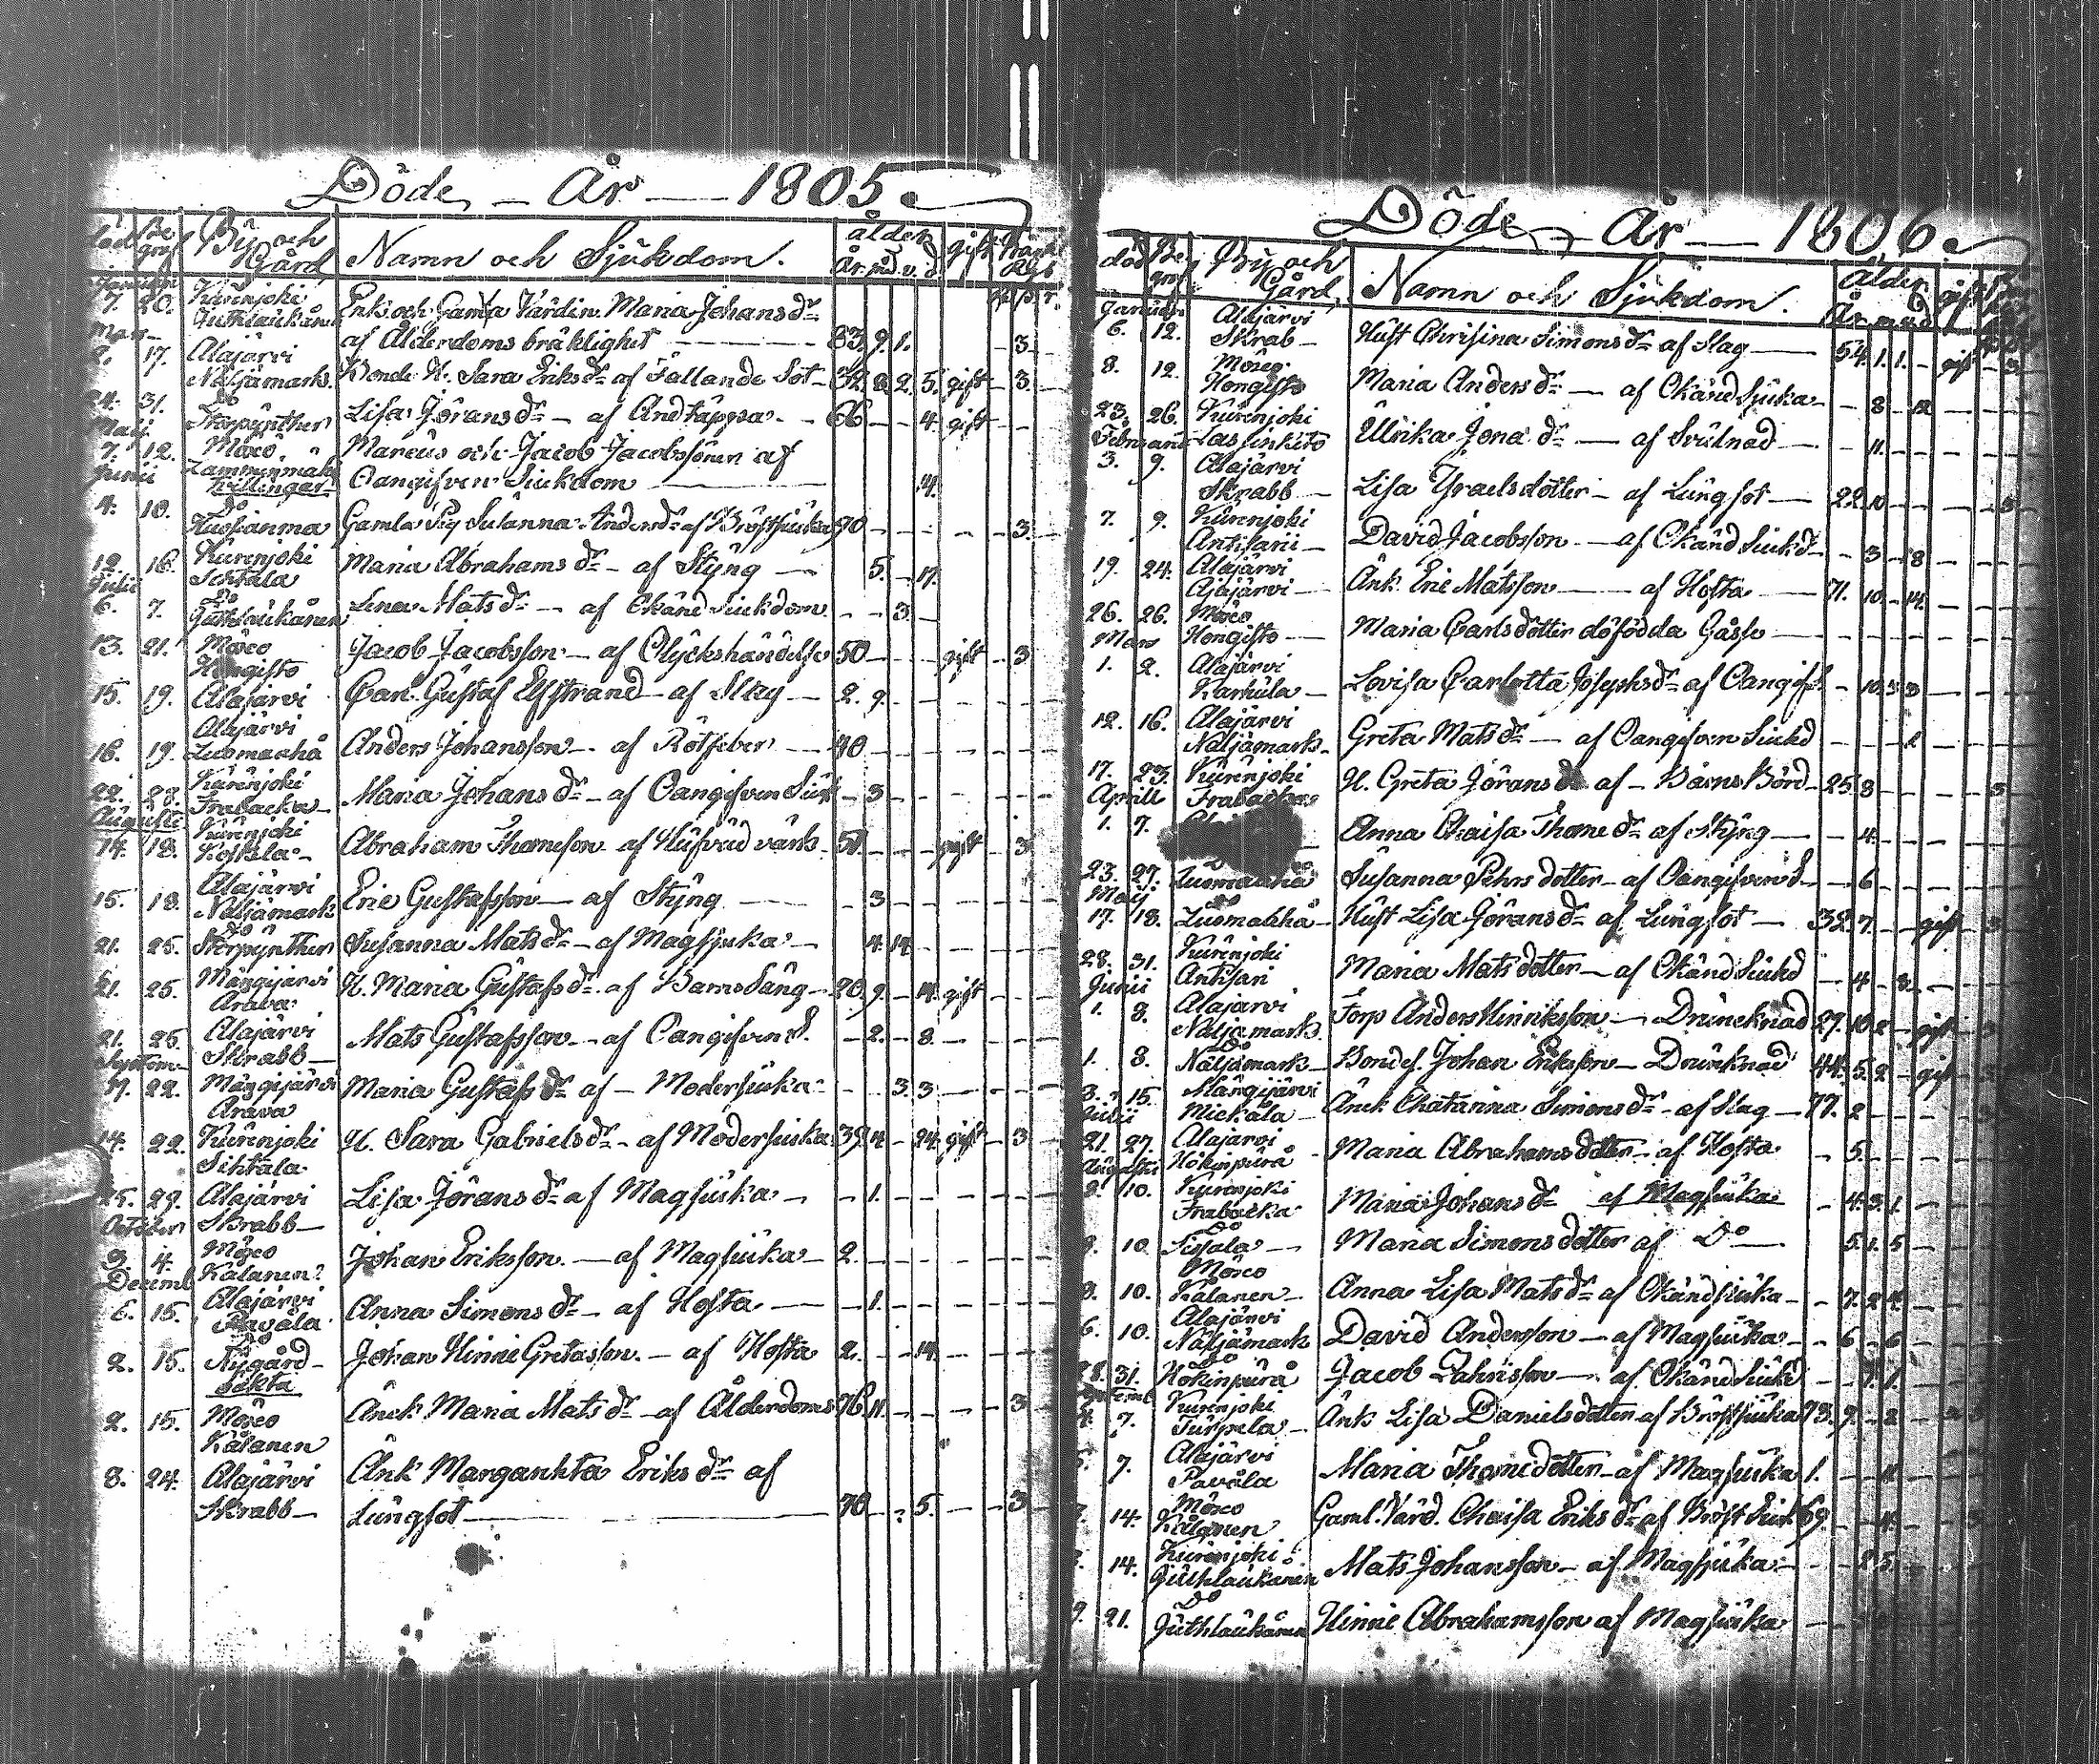 Döde – År – 1805.
död Be graf By och Gård Namn och Sjukdom. ålder År. md. v. d. gift
Januari
7. 20. Kürenjoki Enk. och Gamla Värdin. Maria Johans dr
Guthlaukånen af Ålderdoms bräklighet 83. 9. 1. – 3
Mars
17. Alajärvi
Näljämark. Bonde H. Sara Eriks dr af Fallande Sot – 2. 5. gift – 3
24. 31. Do
Storpynther Lisa Jörans dr – af Andtäppa – 66 – – 4. gift –
Maij
7. 12. Möxö Marcus och Jacob Jacobssöner af
Lamminmäki
tvillingar Oangifven Siukdom 4.
Junii
4. 10. Do
Gamla Pig Susanna Anders dr af Bröstsiuka 70 – – 3
12. 16. Kürenjoki
Sihtala Maria Abrahams dr – af Styng – 5. – 17.
Julii
6. 7. Do
Guthlaukånen Lena Mats dr – af Okänd siukdom – – 3.
13. 21. Möxö
Hongisto Jacob Jacobsson – af Olyckshändelse 50 – – gift – 3
15. 19. Alajärvi Carl Gustaf Elfstrand – af Slag – 2. 9.
Alajärvi
16. 19. Luomaahå Anders Johansson – af Rötfeber – 40
22. 28. Kürenjoki
Frabacka – Maria Johans dr – af Oangifven Siuk – 3
Augusti
14. 18. Kürenjoki
Koskela – Abraham Thomsson af Hufvud värk – gift – 3
15. 18. Alajärvi
Näljämark Eric Gustafsson – af Styng – 3
21. 25. Do
Storpynther Susanna Mats dr – af Magsjuka – 4. 14
21. 25. Mängijärvi
Arava H. Maria Gustafs dr af Barns Säng – 20. 9. – 14. gift
21. 25. Alajärvi
Skrabb – Mats Gustafsson – af Oangifven S. – 2. – 8.
Septem.
22. Mängijärvi
Arava Maria Gustafs dr af – Modersiuka – 3. 3
14. 22. Kürenjoki
Sihtala H. Sara Gabriels dr – af Modersiuka 39. 4 – 24. gift – 3
25. 29. Alajärvi
Skrabb – Lisa Jörans dr af Magsiuka – – 1.
October
3. 4. Möxö
Kalanen Johan Eriksson. – af Magsiuka – 2.
Decemb
6. 15. Alajärvi
Pavåla Anna Simons dr – af Hosta – 1.
2. 15. Do
Nygård – Johan Hinric Gretasson. – af Hosta 2. – – 14.
oäkta
2. 15. Möxö
Kålanen Änck Maria Mats dr – af Ålderdom 76 11. – 3
8. 24. Alajärvi Änk Margarehta Eriks dr af
Skrabb – Lungsot 70 – – 5. – 3
Döde – År – 1806.
död Be graf By och Gård Namn och Sjukdom. Ålder År m v d gift
Januari
6. 12. Alajärvi
Skrab – Hust Chrisina Simons dr af Slag – 54. 1. 1. – gift – 3
8. 12. Möxö
Hongisto Maria Anders dr – af Okänd Sjuka – 8 – 12
23. 26. Kürenjoki
Ulrika Jona dr – af Svulnad – 11.
Februarii
3. 9. Alajärvi
Skrabb – Lisa Ysraelsdotter – af Lungsot – 22. 10 – 3
7. 9. Kürenjoki
Antisarii – David Jacobsson – af Okänd Siukd – 3 – 8
19. 24. Alajärvi
Ajajärvi – Änk. Eric Matsson – af Hosta – 71. 10. – 14.
26. 26. Möxö
Hongisto – Maria Carls dotter döfödda Gåsse –
Mars
1. 2. Alajärvi
Karhula – Lovisa Carlotta Josephs dr af Oangif. – 10. 3 3
12. 16. Alajärvi
Näljämark – Greta Mats dr – af Oangifven Siukd
17. 23. Kürenjoki
Frabacka H. Greta Jörans dr af – Barns Börd – 25. 8
Aprill
1. 7. Anna Chaisa Thome dr af Styng – 4.
23. 27. Do
Luomaahå Susanna Pehrs dotter – af Oangifven S – 6
Maij
17. 18. Do
Luomahhå – Hust Lisa Görans dr af Lungsot – 7. – gift 3
28. 31. Kürenjoki
Antisari Maria Mats dotter – af Okänd Siukd – 4 – 3.
Junii
1. 8. Alajärvi
Näljämark. Torp Anders Hinriksson – Druncknad 29. 10 2 – gift – 3
1. 8. Do
Näljämark – Bondes. Johan Eriksson – Druncknad 44. 5. 2 – gift
3. 15. Mängijärvi
Mickala – Änck Chatarina Simons dr – af Slag – 77. 2
Julii
21. 27. Alajärvi
Hökinpurå – Maria Abrahams dotter – af Hosta – 5.
Augusti
8. 10. Kürenjoki
Frabacka Maria Johans dr af Magsiuka – 4. 3. 1.
10. Do
Sissala – Maria Simons dotter af Do – 5. 1. 5
10. Möxö
Kålanen – Anna Lisa Mats dr af Okänd siuka – 7. 2
6. 10. Alajärvi
Näljämark David Andersson – af Magsiuka – 6 – 6
28. 31. Do
Hökinpurå Jacob Zahrisson – af Okänd Siukd – 7. 1.
7. Kürenjoki
Turpela – Änk Lisa Daniels dotter af Bröstsiuka 73. 9. – 2
7. Alajärvi
Pavåla Maria Thome dotter – af Magsiuka 1. – 11
14. Möxö
Kålanen Gaml. Värd. Chaisa Eriks dr af Bröst Siuk 69
14. Kürenjoki
Guthlaukånen Mats Johansson – af Magsiuka – 2 5
21. Do
Guthlaukånen Hinric Abrahamsson af Magsiuka